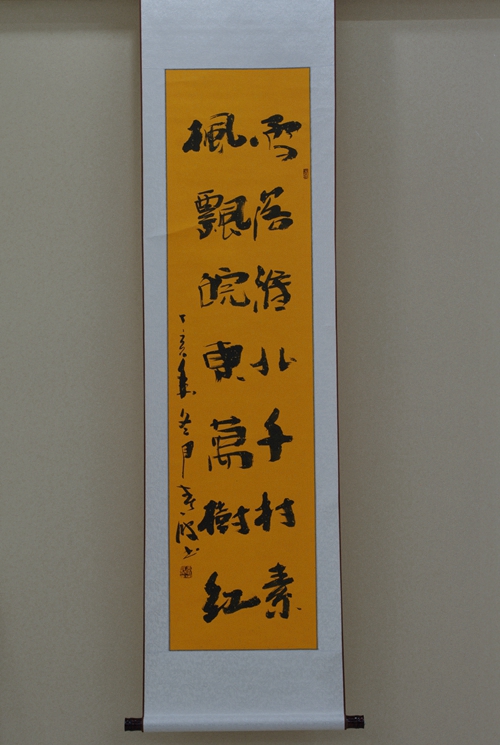 雪落淮北千村素
楓飄皖東萬樹紅
丁亥年冬月